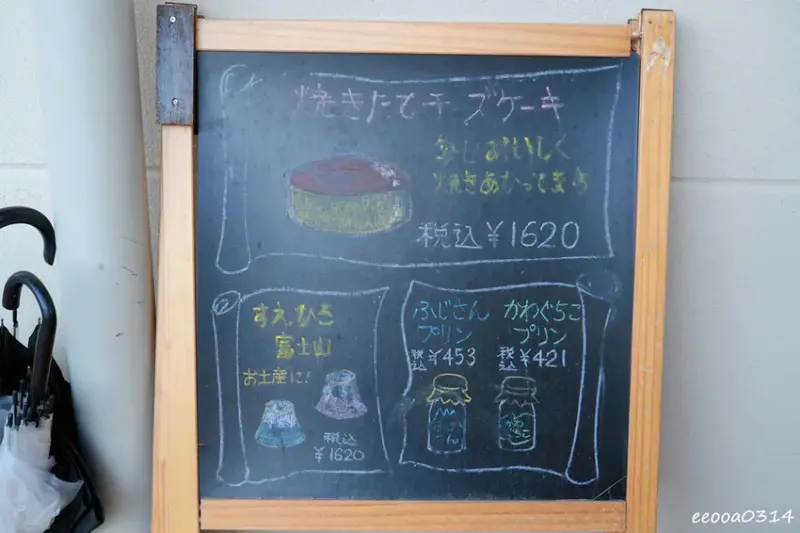 焼きたてチーズケーキ
おいしく
焼きあがってます
税込¥1620
すえひろ
富士山
お土産に!
税込
¥1620
ふじさん
プリン
税込¥453
かわぐちこ
プリン
税込¥421
eeooa0314